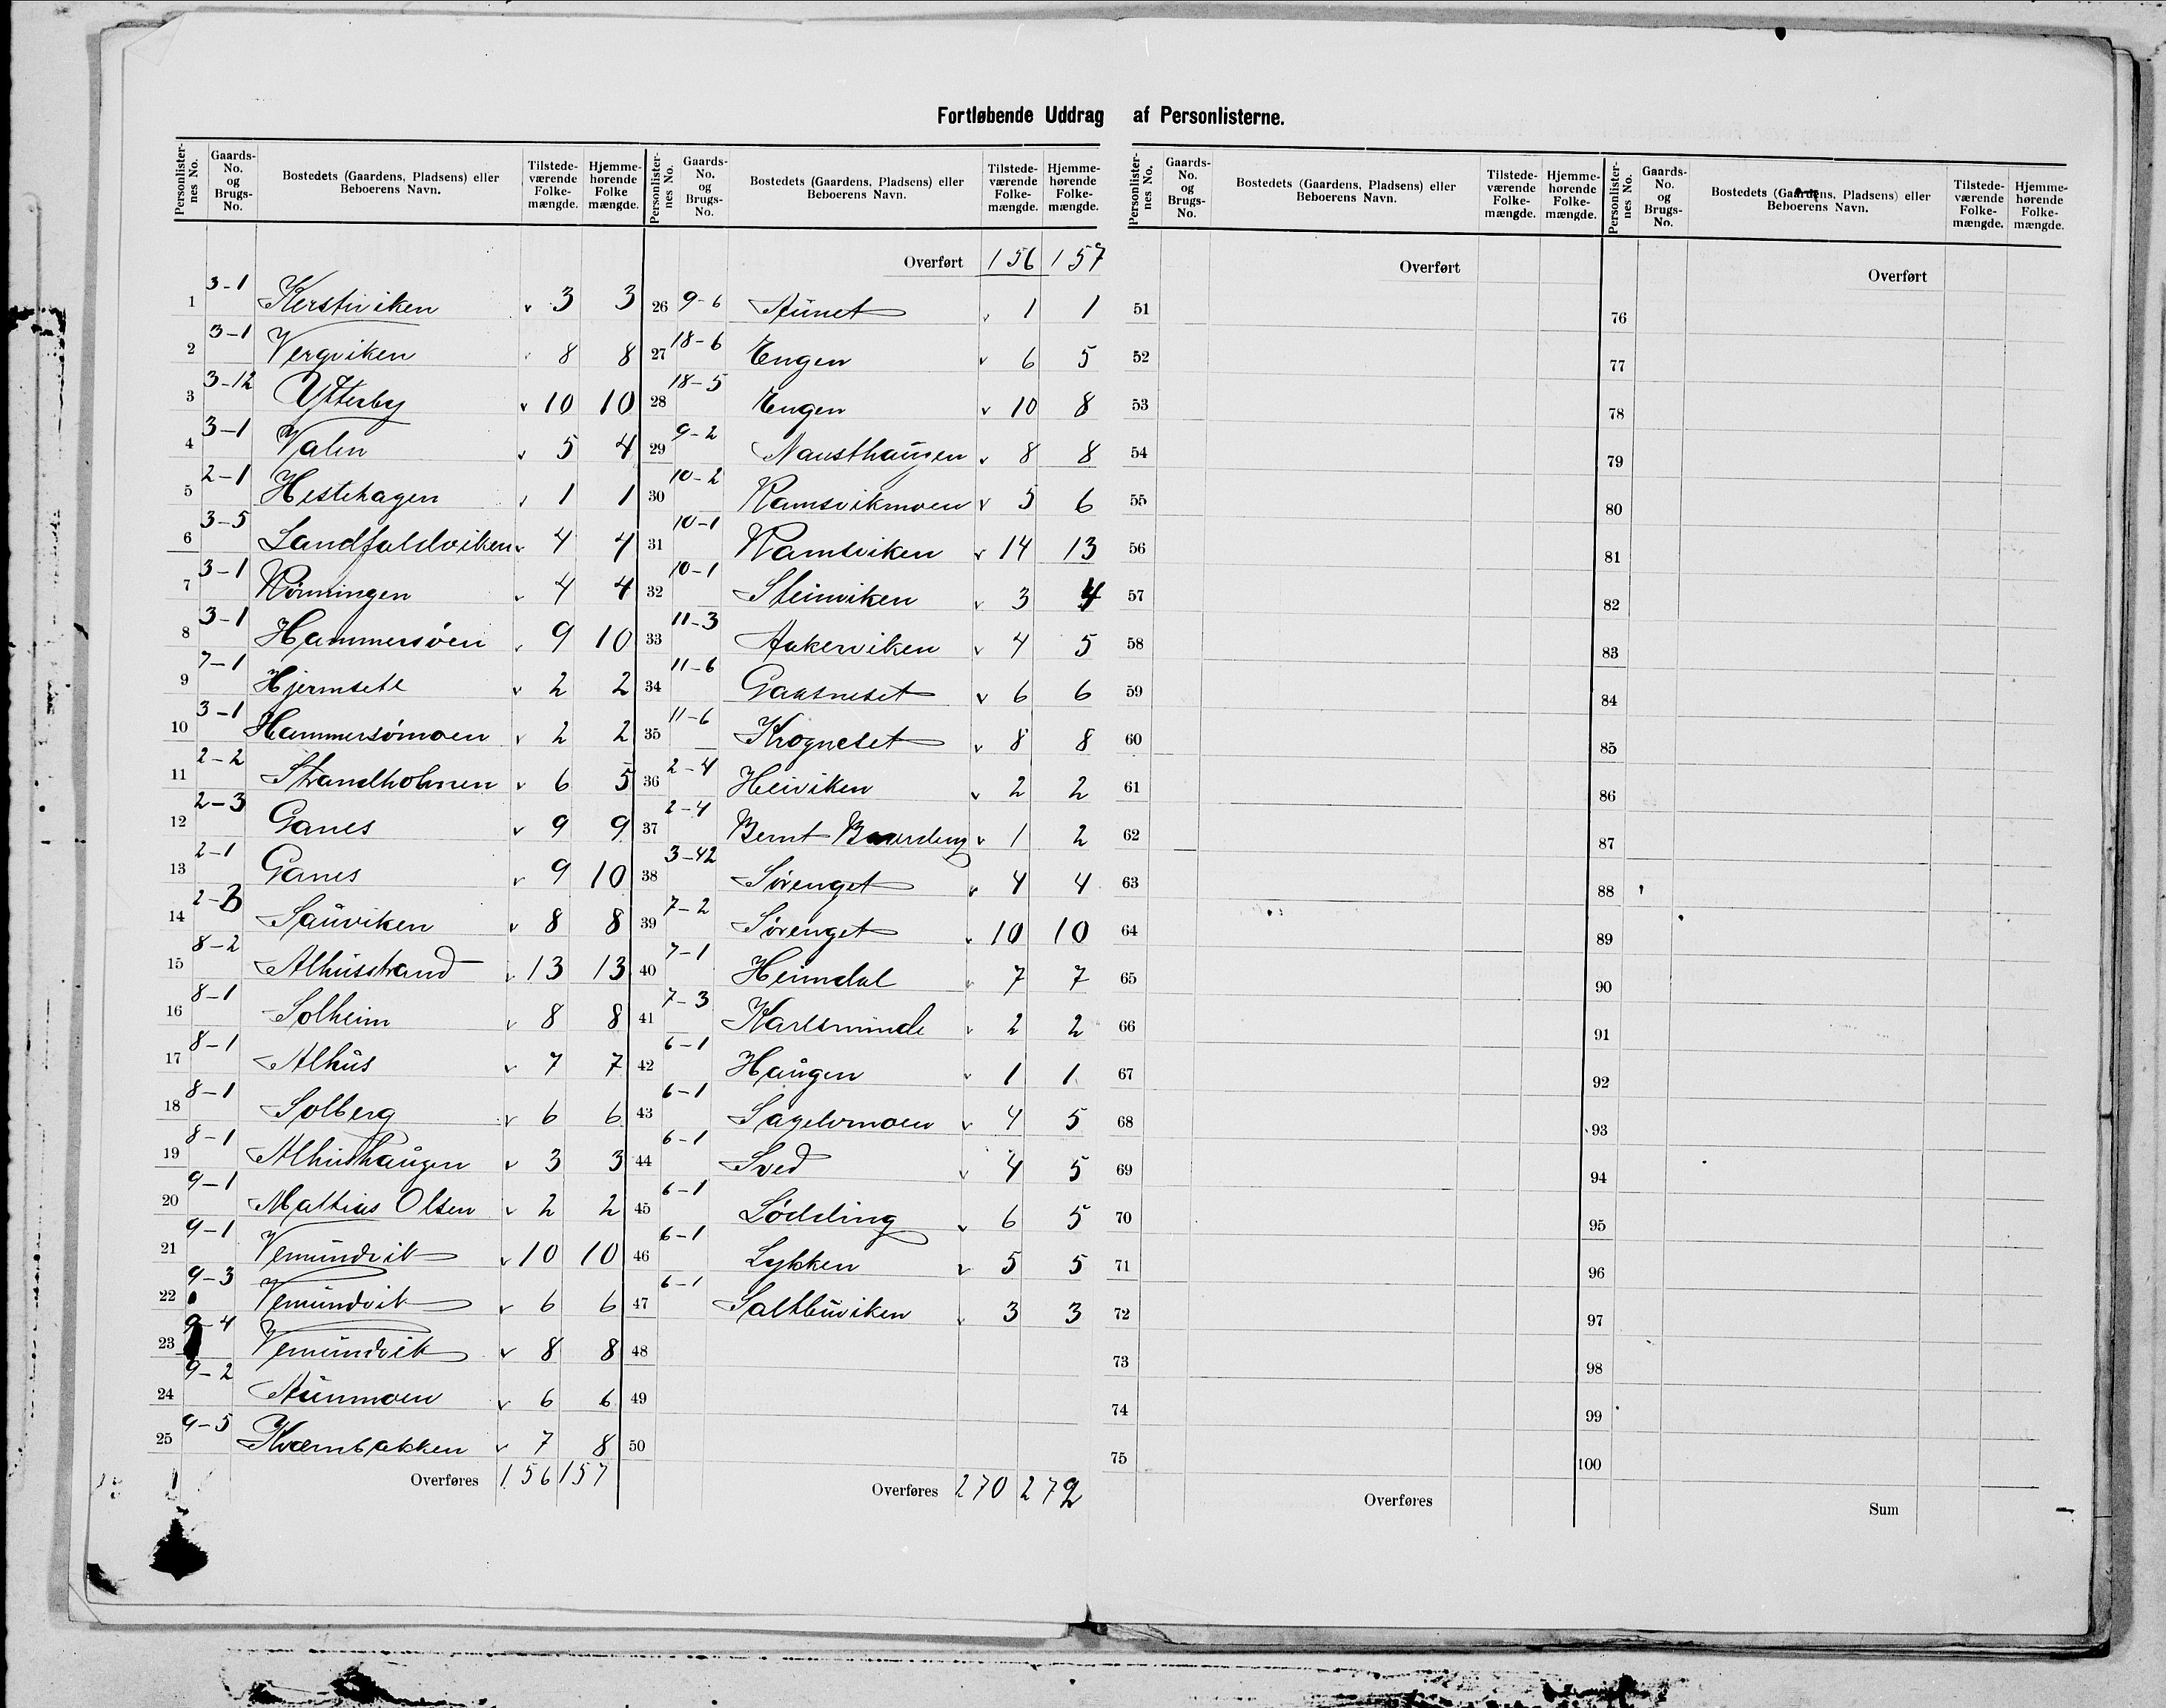 Fortløbende Uddrag af Personlisterne.
Personlisternes No. Gaards-No. og Brugs-No. Bostedets (Gaardens, Pladsens) eller Beboerens Navn. Tilstedeværende Folkemængde. Hjemmehørende Folkemængde.
1 3-1 Kerstiviken v 3 3
2 3-1 Vergviken 8 8
3 3-12 Ytterby v 10 10
4 3-1 Valen v 5 4
5 2-1 Hestehagen v 1 1
6 3-5 Landfaldviken v 4 4
7 3-1 Rönningen v 4 4
8 3-1 Hammersöen v 9 10
9 7-1 Hjermsetl v 2 2
10 3-1 Hammersømoen v 2 2
11 2-2 Strandholmen v 6 5
12 2-3 Ganes v 9 9
13 2-1 Ganes v 9 10
14 2-3 Sauviken v 8 8
15 8-2 Alhusstrand v 13 13
16 8-1 Solheim v 8 8
17 8-1 Alhus v 7 7
18 8-1 Solberg v 6 6
19 8-1 Alhushaugen v 3 3
20 9-1 Mathias Olsen v 2 2
21 9-1 Vemundvik v 10 10
22 9-3 Vemundvik v 6 6
23 9-4 Vemundvik v 8 8
24 9-2 Aunmoen v 6 6
25 9-5 Kværnbakken v 7 8
Overføres 156 157
Personlisternes No. Gaards-No. og Brugs-No. Bostedets (Gaardens, Pladsens) eller Beboerens Navn. Tilstedeværende Folkemængde. Hjemmehørende Folkemængde.
Overført 156 157
26 9-6 Aunet v 1 1
27 18-6 Engen v 6 5
28 18-5 Engen v 10 8
29 9-2 Nausthaugen v 8 8
30 10-2 Ramsvikmoen v 5 6
31 10-1 Ramsviken v 14 13
32 10-1 Steinviken v 3 4
33 11-3 Aakerviken v 4 5
34 11-6 Gaasneset v 6 6
35 11-6 Krogneset v 8 8
36 2-4 Heiviken v 2 2
37 2-4 Bernt v 1 2
38 3-42 Sørenget v 4 4
39 7-2 Sørenget v 10 10
40 7-1 Heimdal v 7 7
41 7-3 Karlsminde v 2 2
42 6-1 Haugen v 1 1
43 6-1 Sagelvmoen v 4 5
44 6-1 Sved v 4 5
45 6-1 Lødding v 6 5
46 6-1 Lykken v 5 5
47 6-1 Saltbuviken v 3 3
48
49
50
Overføres 270 272
Personlisternes No. Gaards-No. og Brugs-No. Bostedets (Gaardens, Pladsens) eller Beboerens Navn. Tilstedeværende Folkemængde. Hjemmehørende Folkemængde.
Overført
51
52
53
54
55
56
57
58
59
60
61
62
63
64
65
66
67
68
69
70
71
72
73
74
75
Overføres
Personlisternes No. Gaards-No. og Brugs-No. Bostedets (Gaardens, Pladsens) eller Beboerens Navn. Tilstedeværende Folkemængde. Hjemmehørende Folkemængde.
Overført
76
77
78
79
80
81
82
83
84
85
86
87
88
89
90
91
92
93
94
95
96
97
98
99
100
Sum